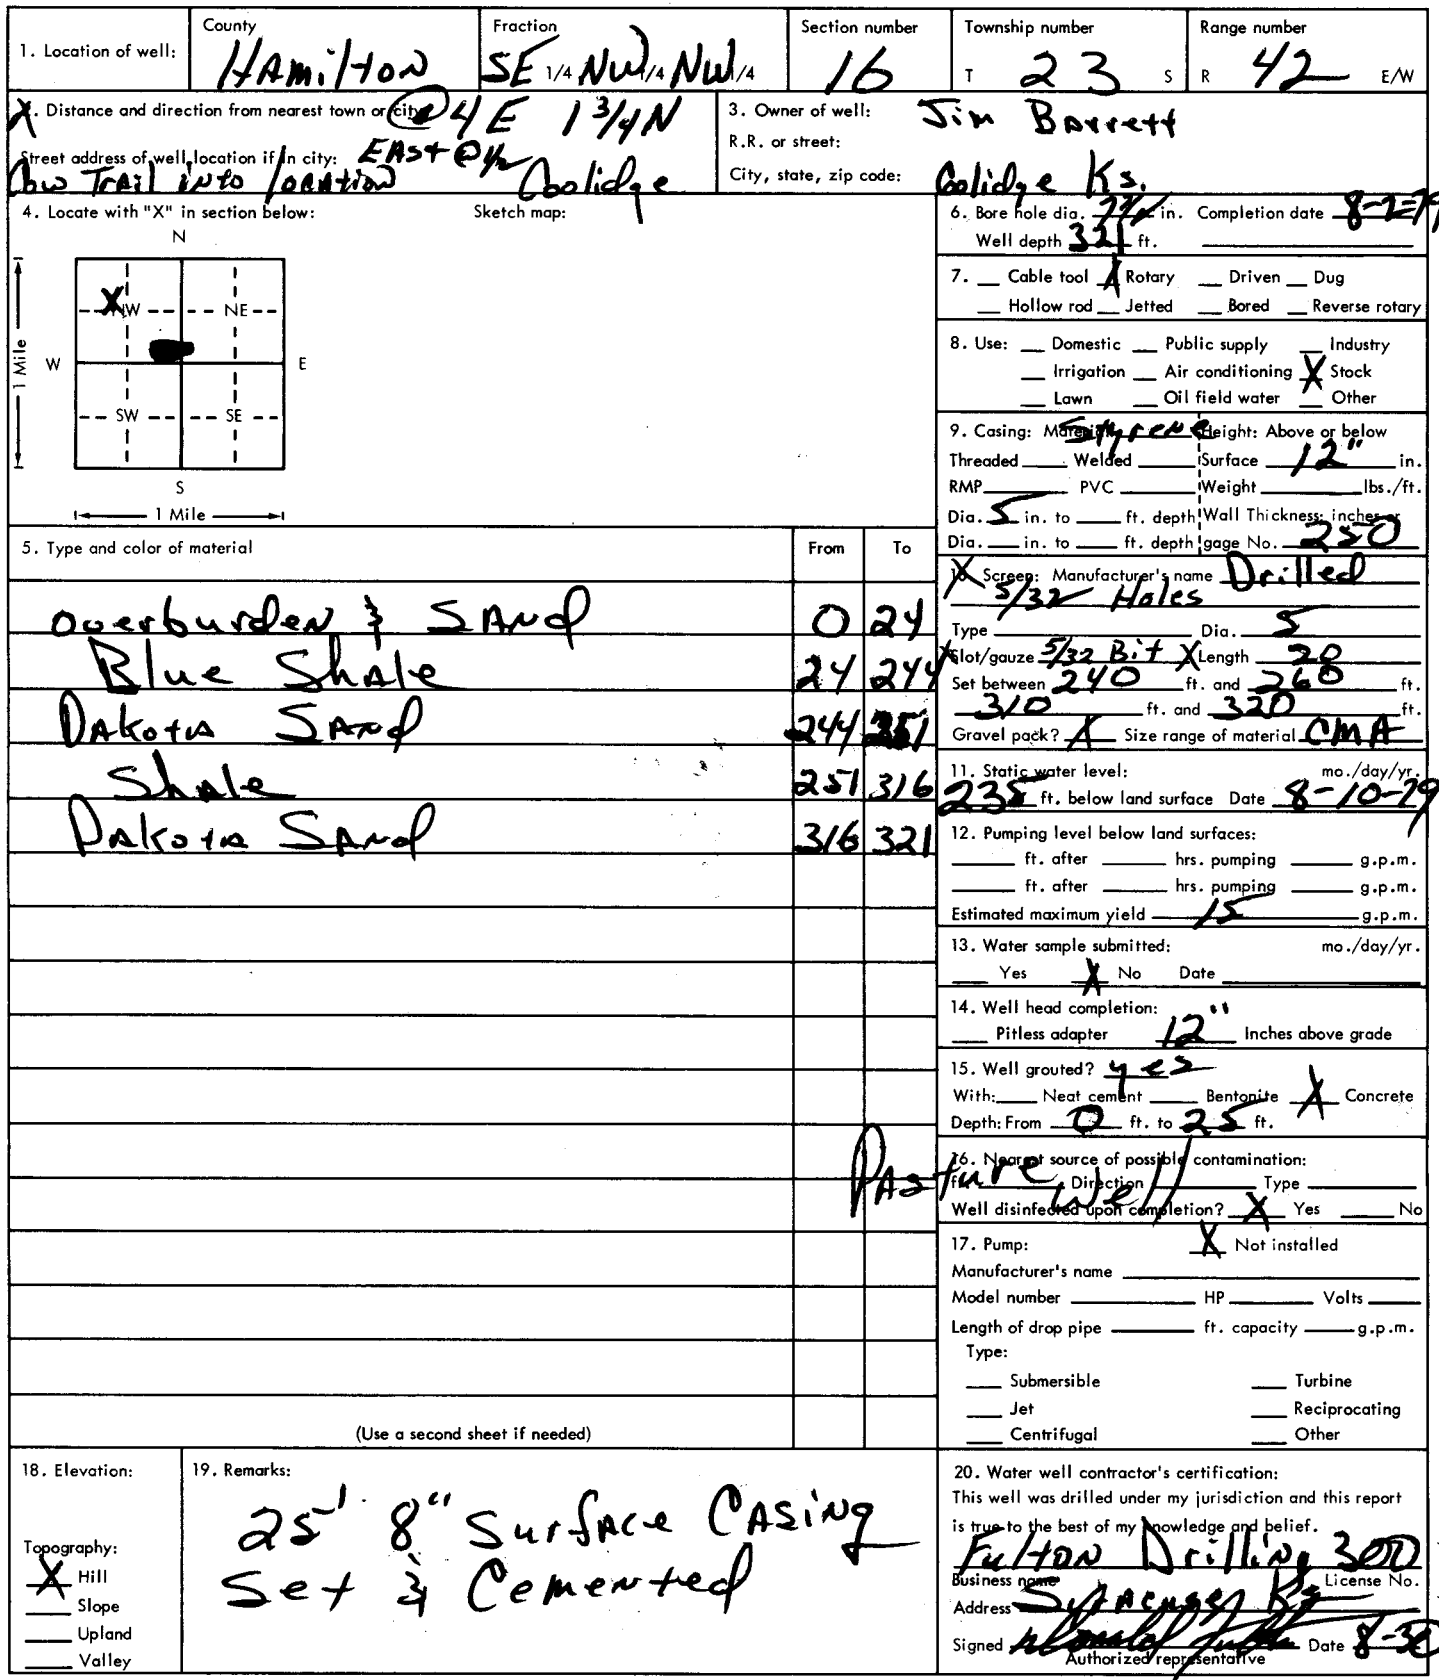 1. Location of well: County Hamilton Fraction SE 1/4 NW 1/4 NW 1/4 Section number 16 Township number T 23 S Range number R 42 E/W
2. Distance and direction from nearest town or city: @ 4 E 1 3/4 N
Street address of well location if in city: EAST @ 1/2
Cow Trail into location Coolidge
3. Owner of well: Jim Barrett
R.R. or street:
City, state, zip code: Coolidge Ks.
4. Locate with "X" in section below: Sketch map:
N
X NW NE
W E
1 Mile
SW SE
S
1 Mile
5. Type and color of material From To
Overburden & SAND 0 24
Blue Shale 24 244
DAKOTA SAND 244 251
Shale 251 316
DAKOTA SAND 316 321
(Use a second sheet if needed)
6. Bore hole dia. in. Completion date
Well depth 321 ft.
7. Cable tool X Rotary Driven Dug
Hollow rod Jetted Bored Reverse rotary
8. Use: Domestic Public supply Industry
Irrigation Air conditioning X Stock
Lawn Oil field water Other
9. Casing: Material Styrene Height: Above or below
Threaded Welded Surface 12" in.
RMP PVC Weight lbs./ft.
Dia. 5 in. to ft. depth Wall Thickness: inches or
Dia. in. to ft. depth gage No. 250
10. Screen: Manufacturer's name Drilled
5/32 Holes
Type Dia. 5
X Slot/gauze 5/32 Bit X Length 20
Set between 240 ft. and 260 ft.
310 ft. and 320 ft.
Gravel pack? X Size range of material CMA
11. Static water level: mo./day/yr.
235 ft. below land surface Date 8-10-79
12. Pumping level below land surfaces:
ft. after hrs. pumping g.p.m.
ft. after hrs. pumping g.p.m.
Estimated maximum yield 15 g.p.m.
13. Water sample submitted: mo./day/yr.
Yes X No Date
14. Well head completion:
Pitless adapter 12" Inches above grade
15. Well grouted? yes
With: Neat cement Bentonite X Concrete
Depth: From 0 ft. to 25 ft.
16. Nearest source of possible contamination:
Pasture Well
ft. Direction Type
Well disinfected upon completion? X Yes No
17. Pump: X Not installed
Manufacturer's name
Model number HP Volts
Length of drop pipe ft. capacity g.p.m.
Type:
Submersible Turbine
Jet Reciprocating
Centrifugal Other
18. Elevation:
Topography:
X Hill
Slope
Upland
Valley
19. Remarks:
25' 8" Surface CASING
Set & Cemented
20. Water well contractor's certification:
This well was drilled under my jurisdiction and this report
is true to the best of my knowledge and belief.
Fulton Drilling 300
Business name License No.
Address Syracuse, Ks
Signed Donald Fulton Date 8-30
Authorized representative